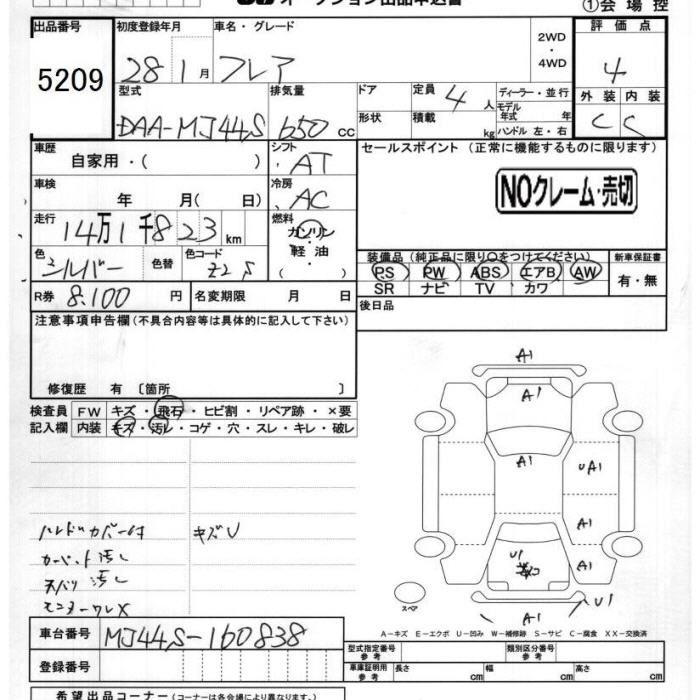 ①会場控
出品番号
5209
初度登録年月
28 1月
車名・グレード
フレア
2WD
・
4WD
評価点
4
型式
DAA-MJ44S
排気量
650 cc
ドア
形状
定員 4 人
積載 kg
ディーラー・並行
モデル年式 年
ハンドル 左・右
外装 内装
C C
車歴
自家用・( )
シフト
AT
セールスポイント (正常に機能するものに限ります)
車検
年 月( 日)
冷房
AC
NOクレーム・売切
走行
14万1千823km
燃料
ガソリン
軽油
( )
色
シルバー
色替
色コード
Z2S
装備品 (純正品に限り○をつけてください)
新車保証書
PS PW ABS エアB AW
SR ナビ TV カワ
有・無
R券 8,100 円
名変期限 月 日
後日品
注意事項申告欄(不具合内容等は具体的に記入して下さい)
修復歴 有 〔箇所 〕
検査員記入欄
FW キズ・飛石・ヒビ割・リペア跡・×要
内装 キズ・汚れ・コゲ・穴・スレ・キレ・破レ
ハンドルカバー付
キズU
カーペット汚し
天バリ 汚し
A1
A1
A1
UA1
A1
U1
A1
A1
U1
スペア
A-キズ E-エクボ U-凹み W-補修跡 S-サビ C-腐食 XX-交換済
車台番号
MJ44S-160838
登録番号
型式指定番号参考
類別区分番号
車庫証明用参考
長さ cm 幅 cm 高さ cm
希望出品コーナー(コーナーは各会場により異なります。)